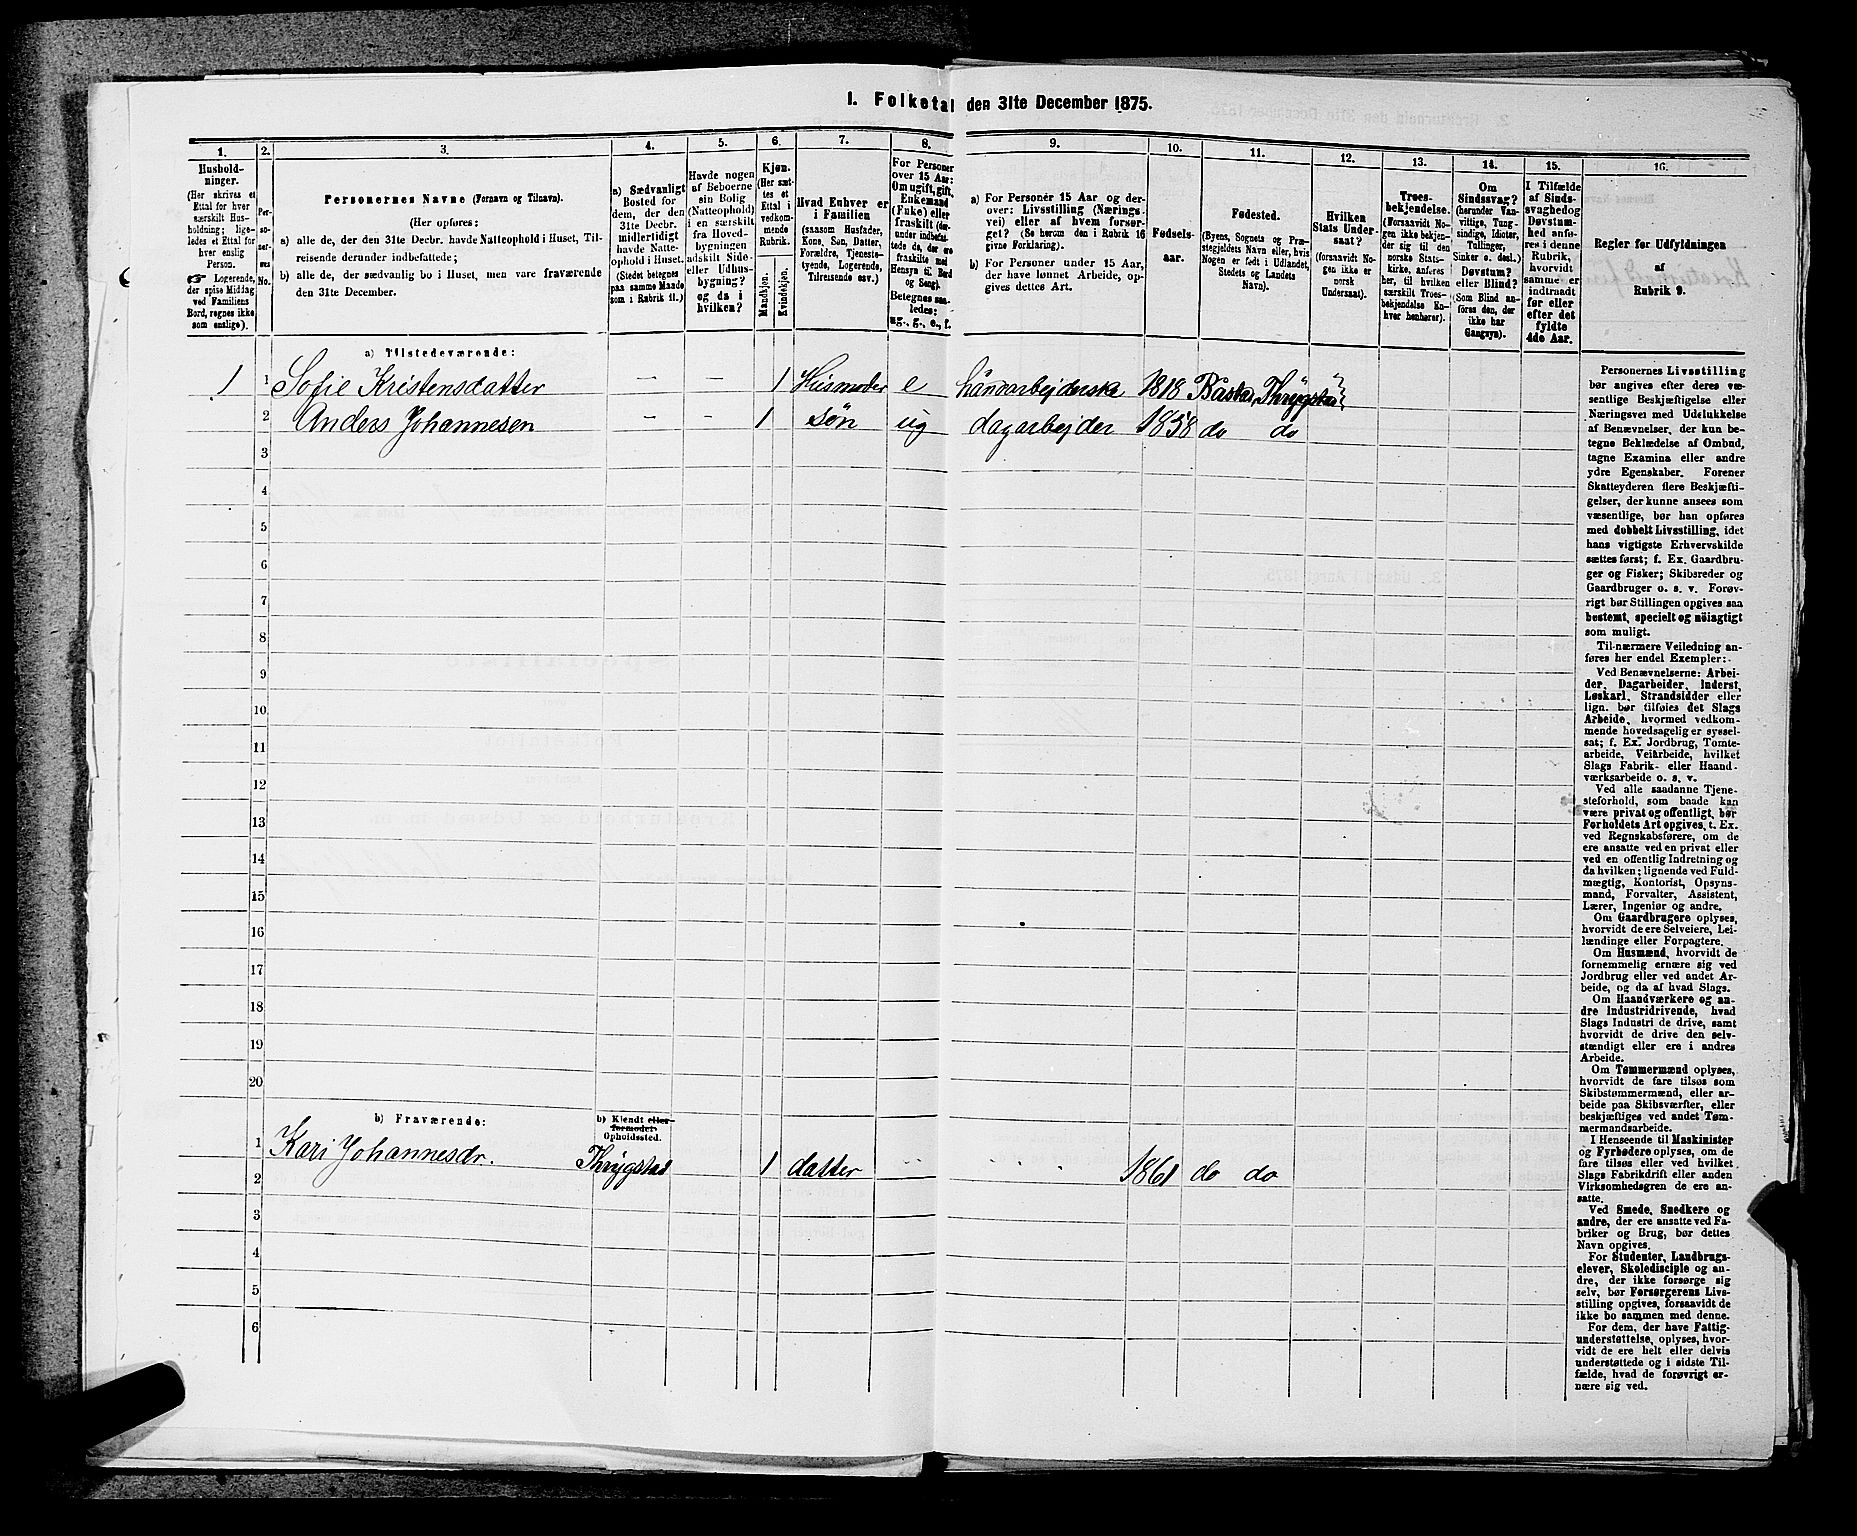 1. Folketal den 31te December 1875.
1. 2. 3. 4. 5. 6. 7. 8. 9. 10. 11. 12. 13. 14. 15. 16.
Hushold-
ninger.
(Her skrives et
Ettal for hver
særskilt Hus-
holdning; lige-
ledes et Ettal for
hver enslig
Person.
☛ Logerende,
der spise Middag
ved Familiens
Bord, regnes ikke
som enslige).
Per-
so-
ner-
nes
No.
Personernes Navne (Fornavn og Tilnavn).
(Her opføres:
a) alle de, der den 31te Decbr. havde Natteophold i Huset, Til-
reisende derunder indbefattede;
b) alle de, der sædvanlig bo i Huset, men vare fraværende
den 31te December.
a) Sædvanligt
Bosted for
dem, der den
31te Decbr.
midlertidigt
havde Natte-
ophold i Huset.
(Stedet betegnes
paa samme Maade
som i Rubrik 11.)
Havde nogen
af Beboerne
sin Bolig
(Natteophold)
i en særskilt
fra Hoved-
bygningen
adskilt Side-
eller Udhus-
bygning?
og da i
hvilken?
Kjøn.
(Her sæt-
tes et
Ettal i
vedkom-
mende
Rubrik.
Mandkjøn.
Kvindekjøn.
Hvad Enhver er
i Familien
(saasom Husfader,
Kone, Søn, Datter,
Forældre, Tjeneste-
tyende, Logerende,
Tilreisende osv.)
For Personer
over 15 Aar:
Om ugift, gift,
Enkemand
(Enke) eller
fraskilt (her-
under indbefat-
tede de, der ere
fraskilte med
Hensyn til Bord
og Seng).
Betegnes saa-
ledes:
ug., g., e., f.
a) For Personer 15 Aar og der-
over: Livsstilling (Nærings-
vei) eller af hvem forsør-
get? (Se herom den i Rubrik 16
givne Forklaring).
b) For Personer under 15 Aar,
der have lønnet Arbeide, op-
gives dettes Art.
Fødsels-
aar.
Fødested.
(Byens, Sognets og Præ-
stegjeldets Navn eller, hvis
Nogen er født i Udlandet,
Stedets og Landets
Navn).
Hvilken
Stats Under-
saat?
(forsaavidt No-
gen ikke er
norsk
Undersaat).
Troes-
bekjendelse.
(Forsaavidt No-
gen ikke bekjen-
der sig til den
norske Stats-
kirke, anføres
her, til hvilken
særskilt Troes-
bekjendelse En-
hver henhører).
Om
Sindssvag?
(herunder Van-
vittige, Tung-
sindige, Idioter,
Tullinger,
Sinker o. desl.)
Døvstum?
eller Blind?
(Som Blind an-
føres den, der
ikke har
Gangsyn).
I Tilfælde
af Sinds-
svaghed og
Døvstum-
hed anfø-
res i denne
Rubrik,
hvorvidt
samme er
indtraadt
før eller
efter det
fyldte
4de Aar.
Regler for Udfyldningen
af
Rubrik 9.
a) Tilstedeværende:
1 1 Sofie Kristensdatter — — 1 Husmoder e håndarbejderske 1818 Båstad, Thrygstad
2 Anders Johannesen — — 1 søn ug dagarbejder 1858 do do
3
4
5
6
7
8
9
10
11
12
13
14
15
16
17
18
19
20
b) Fraværende:
b) Kjendt eller
formodet
Opholdssted.
1 Kari Johannesdr. Thrygstad 1 datter 1861 do do
2
3
4
5
6
Personernes Livsstilling
bør angives efter deres væ-
sentlige Beskjæftigelse eller
Næringsvei med Udelukkelse
af Benævnelser, der kun be-
tegne Beklædelse af Ombud,
tagne Examina eller andre
ydre Egenskaber. Forener
Skatteyderen flere Beskjæfti-
gelser, der kunne ansees som
væsentlige, bør han opføres
med dobbelt Livsstilling, idet
hans vigtigste Erhvervskilde
sættes først; f. Ex. Gaardbru-
ger og Fisker; Skibsreder og
Gaardbruger o. s. v. Forøv-
rigt bør Stillingen opgives saa
bestemt, specielt og nøiagtigt
som muligt.
Til nærmere Veiledning an-
føres her endel Exempler:
Ved Benævnelserne: Arbei-
der, Dagarbeider, Inderst,
Løskarl, Strandsidder eller
lign. bør tilføies det Slags
Arbeide, hvormed vedkom-
mende hovedsagelig er syssel-
sat; f. Ex. Jordbrug, Tomte-
arbeide, Veiarbeide, hvilket
Slags Fabrik- eller Haand-
værksarbeide o. s. v.
Ved alle saadanne Tjene-
steforhold, som baade kan
være privat og offentligt, bør
Forholdets Art opgives, t. Ex.
ved Regnskabsførere, om de
ere ansatte ved en privat eller
ved en offentlig Indretning og
da hvilken; lignende ved Fuld-
mægtig, Kontorist, Opsyns-
mand, Forvalter, Assistent,
Lærer, Ingeniør og andre.
Om Gaardbrugere oplyses,
hvorvidt de ere Selveiere, Lei-
lændinge eller Forpagtere.
Om Husmænd, hvorvidt de
fornemmelig ernære sig ved
Jordbrug eller ved andet Ar-
beide, og da af hvad Slags.
Om Haandværkere og an-
dre Industridrivende, hvad
Slags Industri de drive, samt
hvorvidt de drive den selv-
stændigt eller ere i andres
Arbeide.
Om Tømmermænd oplyses,
hvorvidt de fare tilsøs som
Skibstømmermænd, eller ar-
beide paa Skibsværfter, eller
beskjæftiges ved andet Tøm-
mermandsarbeide.
I Henseende til Maskinister
og Fyrbødere oplyses, om de
fare tilsøs eller ved hvilket
Slags Fabrikdrift eller anden
Virksomhedsgren de ere an-
satte.
Ved Smede, Snedkere og
andre, der ere ansatte ved Fa-
briker og Brug, bør dettes
Navn opgives.
For Studenter, Landbrugs-
elever, Skoledisciple og an-
dre, der ikke forsørge sig
selv, bør Forsørgerens Livs-
stilling opgives, forsaavidt de
ikke bo sammen med denne.
For dem, der have Fattig-
understøttelse, oplyses, hvor-
vidt de ere helt eller delvis
understøttede og i sidste Til-
fælde, hvad de forøvrigt er-
nære sig ved.